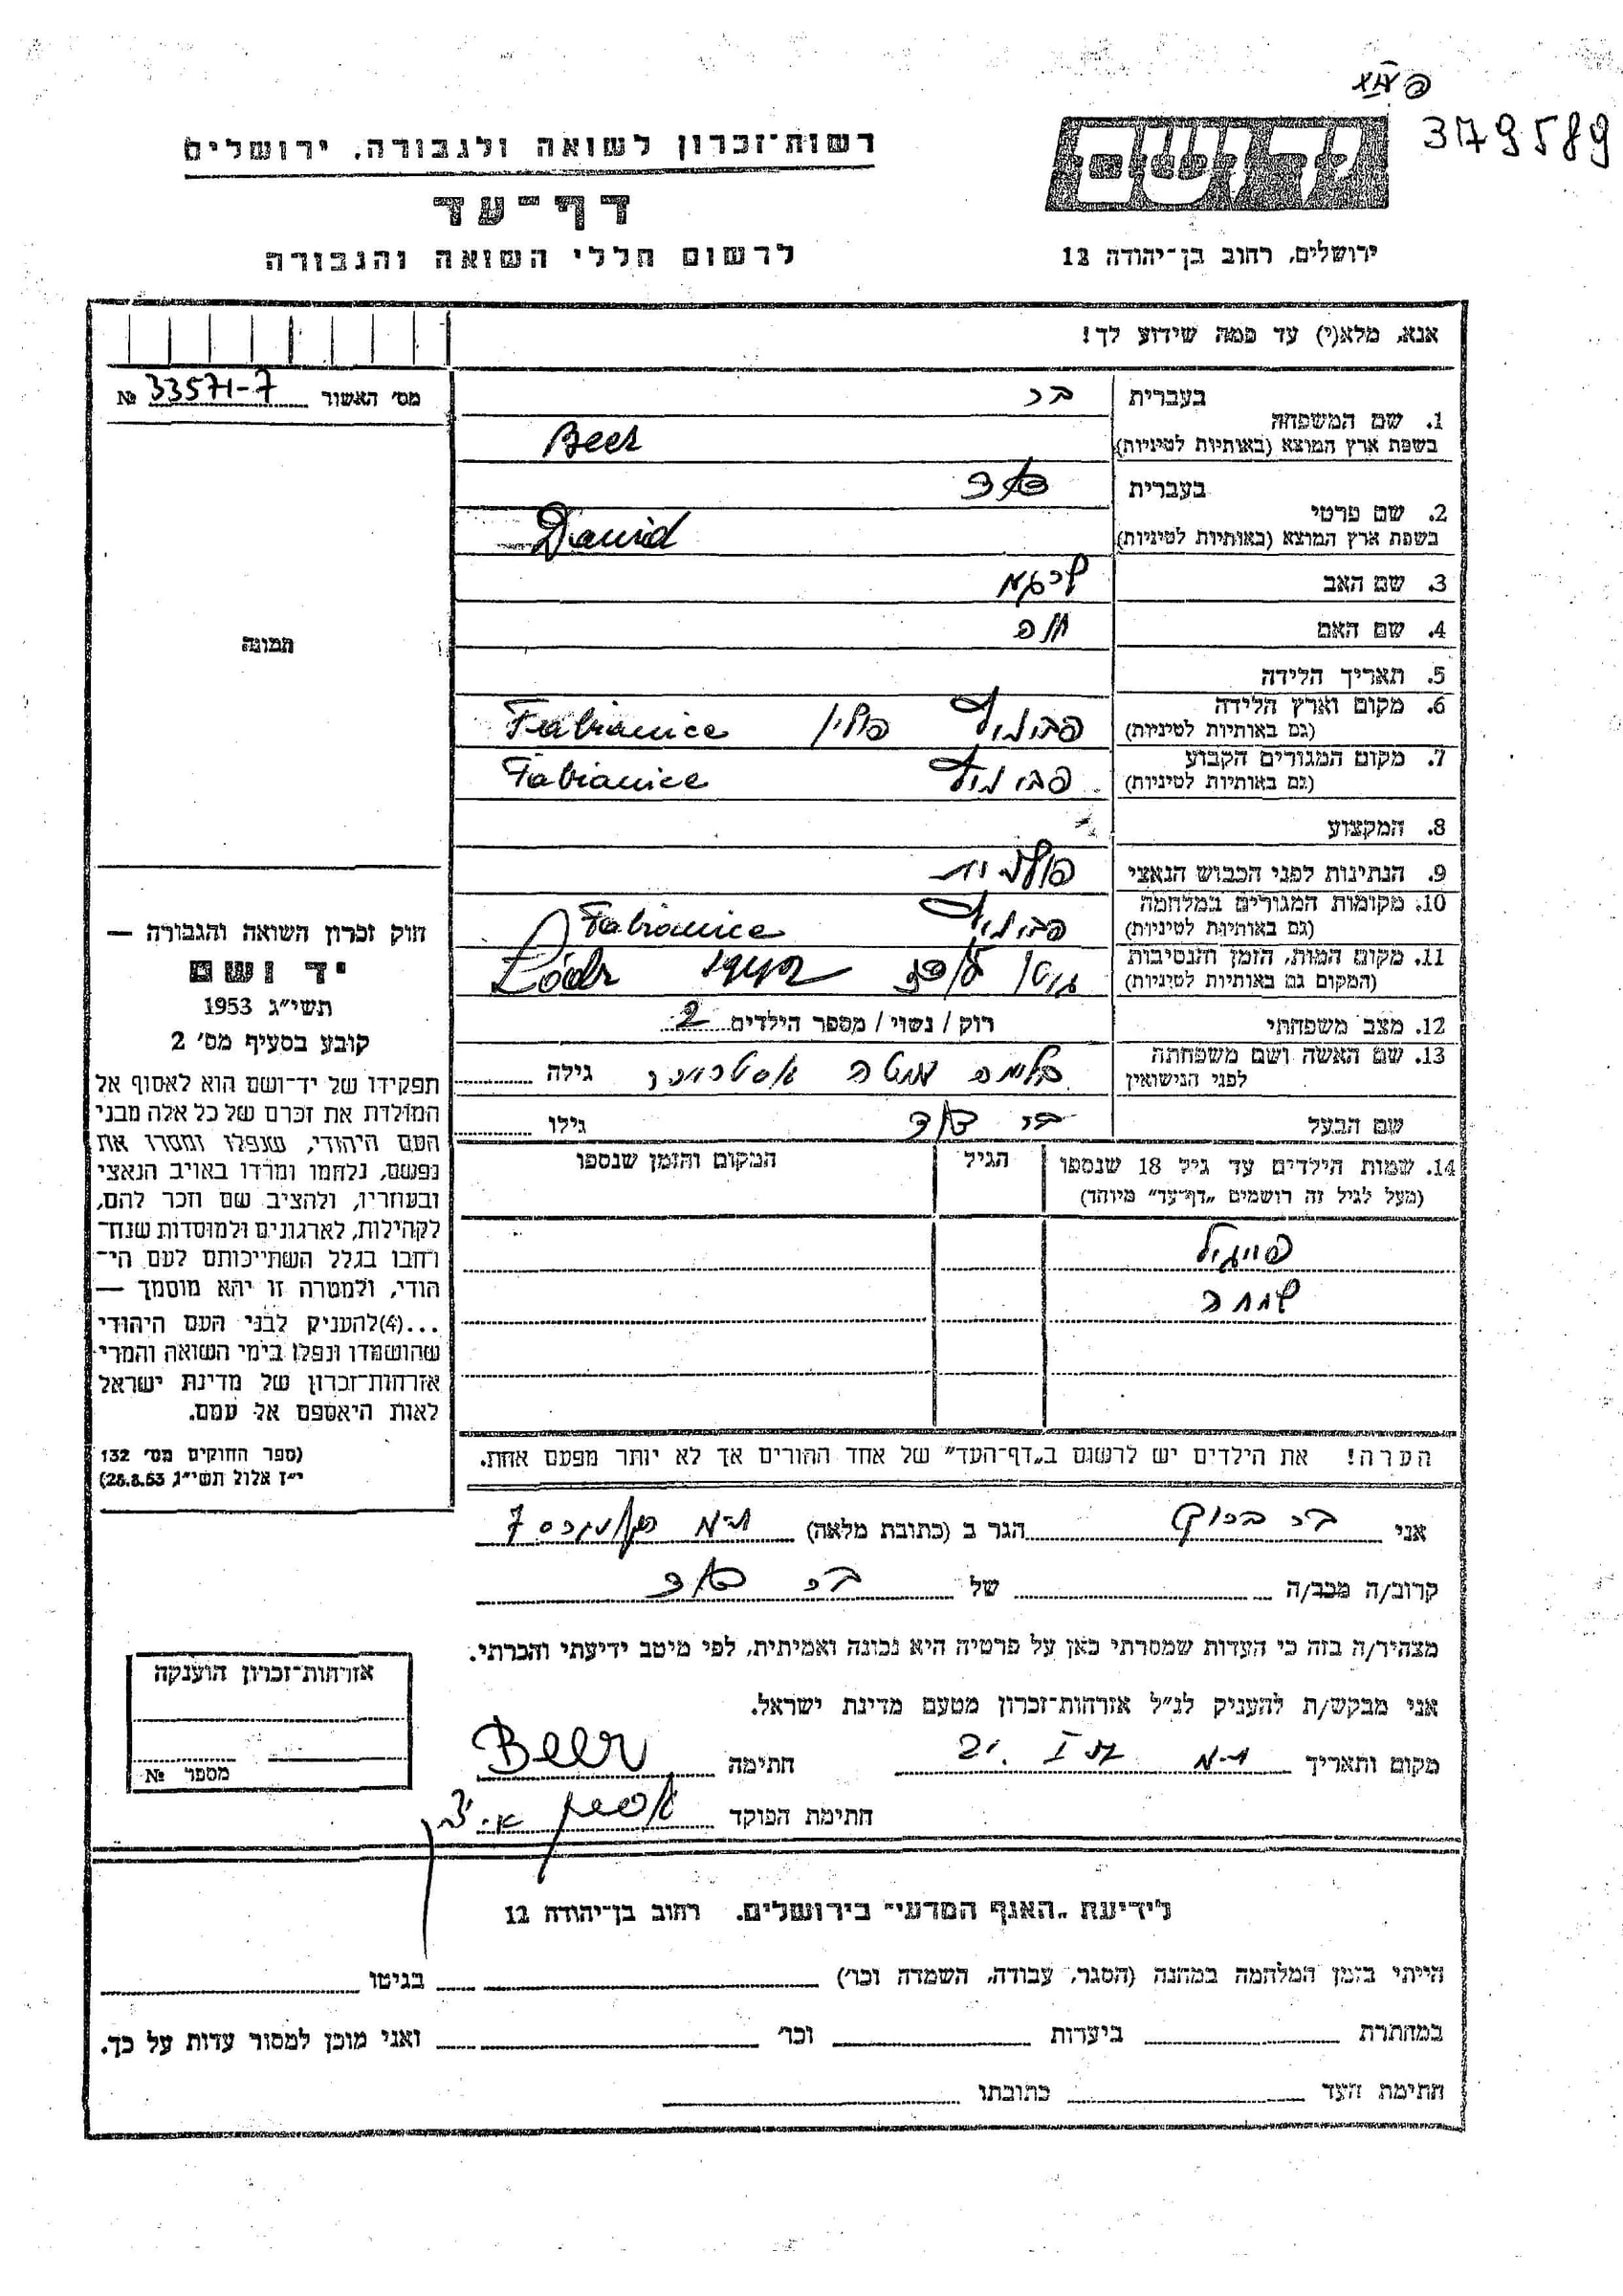 379589
רשות־זכרון לשואה ולגבורה, ירושלים
דף־עד
לרשום חללי השואה והגבורה
ירושלים, רחוב בן־יהודה 12
אנא, מלא(י) עד כמה שידוע לך!
מס׳ האשור 33571-7 №
בעברית
1. שם המשפחה
בשפת ארץ המוצא (באותיות לטיניות) Beer
בעברית דוד
2. שם פרטי
בשפת ארץ המוצא (באותיות לטיניות) Dawid
3. שם האב
4. שם האם
5. תאריך הלידה
6. מקום וארץ הלידה פולין Fabianice
(גם באותיות לטיניות)
7. מקום המגורים הקבוע Fabianice
(גם באותיות לטיניות)
8. המקצוע
9. הנתינות לפני הכבוש הנאצי פולנית
10. מקומות המגורים במלחמה Fabianice
(גם באותיות לטיניות)
11. מקום המות, הזמן והנסיבות גטו לודז 1942 Łódz
(המקום גם באותיות לטיניות)
12. מצב משפחתי רוק / נשוי / מספר הילדים 2
13. שם האשה ושם משפחתה גילה
לפני הנישואין
שם הבעל בר דוד גילו
14. שמות הילדים עד גיל 18 שנספו הגיל המקום והזמן שנספו
(מעל לגיל זה רושמים „דף־עד” מיוחד)
פייגל
שמחה
הערה! את הילדים יש לרשום ב„דף־העד” של אחד ההורים אך לא יותר מפעם אחת.
תמונה
חוק זכרון השואה והגבורה —
יד ושם
תשי״ג 1953
קובע בסעיף מס׳ 2
תפקידו של יד־ושם הוא לאסוף אל
המולדת את זכרם של כל אלה מבני
העם היהודי, שנפלו ומסרו את
נפשם, נלחמו ומרדו באויב הנאצי
ובעוזריו, ולהציב שם וזכר להם,
לקהילות, לארגונים ולמוסדות שנח־
רחבו בגלל השתייכותם לעם הי־
הודי, ולמטרה זו יהא מוסמך —
...(4)להעניק לבני העם היהודי
שהושמדו ונפלו בימי השואה והמרי
אזרחות־זכרון של מדינת ישראל
לאות היאספם אל עמם.
(ספר החוקים מס׳ 132
י״ז אלול תשי״ג 28.8.53)
אני בר ברוך הגר ב (כתובת מלאה) ת־א 7
קרוב/ה מכב/ה של בר דוד
מצהיר/ה בזה כי העדות שמסרתי כאן על פרטיה היא נכונה ואמיתית, לפי מיטב ידיעתי והכרתי.
אני מבקש/ת להעניק לנ״ל אזרחות־זכרון מטעם מדינת ישראל.
מקום ותאריך ת־א חתימה Beer
חתימת הפוקד
אזרחות־זכרון הוענקה
מספר №
לידיעת „האגף המדעי” בירושלים. רחוב בן־יהודה 12
הייתי בזמן המלחמה במחנה (הסגר, עבודה, השמדה וכו׳) בגיטו
במחתרת ביערות וכו׳ ואני מוכן למסור עדות על כך.
חתימת העד כתובתו